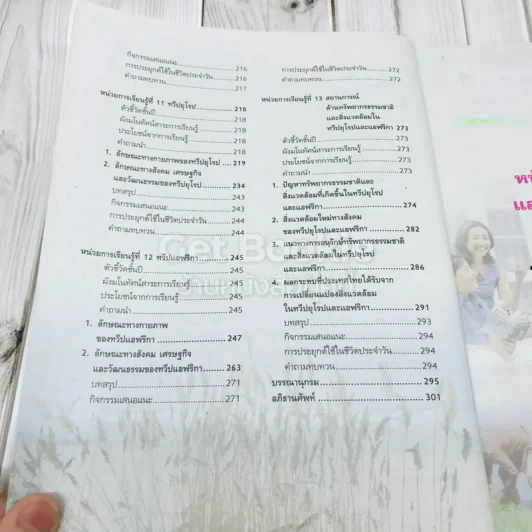 กิจกรรมเสนอแนะ 216
การประยุกต์ใช้ในชีวิตประจำวัน 216
คำถามทบทวน 217
หน่วยการเรียนรู้ที่ 11 ทวีปยุโรป 218
ตัวชี้วัดชั้นปี 218
ผังมโนทัศน์สาระการเรียนรู้ 218
ประโยชน์จากการเรียนรู้ 218
คำถามนำ 218
1. ลักษณะทางกายภาพของทวีปยุโรป 219
2. ลักษณะทางสังคม เศรษฐกิจ
และวัฒนธรรมของทวีปยุโรป 234
บทสรุป 243
กิจกรรมเสนอแนะ 243
การประยุกต์ใช้ในชีวิตประจำวัน 244
คำถามทบทวน 244
หน่วยการเรียนรู้ที่ 12 ทวีปแอฟริกา 245
ตัวชี้วัดชั้นปี 245
ผังมโนทัศน์สาระการเรียนรู้ 245
ประโยชน์จากการเรียนรู้ 245
คำถามนำ 245
1. ลักษณะทางกายภาพ
ของทวีปแอฟริกา 247
2. ลักษณะทางสังคม เศรษฐกิจ
และวัฒนธรรมของทวีปแอฟริกา 263
บทสรุป 271
กิจกรรมเสนอแนะ 271
การประยุกต์ใช้ในชีวิตประจำวัน 272
คำถามทบทวน 272
หน่วยการเรียนรู้ที่ 13 สถานการณ์
ด้านทรัพยากรธรรมชาติ
และสิ่งแวดล้อมใน
ทวีปยุโรปและแอฟริกา 273
ตัวชี้วัดชั้นปี 273
ผังมโนทัศน์สาระการเรียนรู้ 273
ประโยชน์จากการเรียนรู้ 273
คำถามนำ 273
1. ปัญหาทรัพยากรธรรมชาติและ
สิ่งแวดล้อมที่เกิดขึ้นในทวีปยุโรป
และแอฟริกา 274
2. สิ่งแวดล้อมใหม่ทางสังคม
ของทวีปยุโรปและแอฟริกา 282
3. แนวทางการอนุรักษ์ทรัพยากรธรรมชาติ
และสิ่งแวดล้อมในทวีปยุโรป
และแอฟริกา 286
4. ผลกระทบที่ประเทศไทยได้รับจาก
การเปลี่ยนแปลงสิ่งแวดล้อม
ในทวีปยุโรปและแอฟริกา 291
บทสรุป 293
กิจกรรมเสนอแนะ 294
การประยุกต์ใช้ในชีวิตประจำวัน 294
คำถามทบทวน 294
บรรณานุกรม 295
อภิธานศัพท์ 301